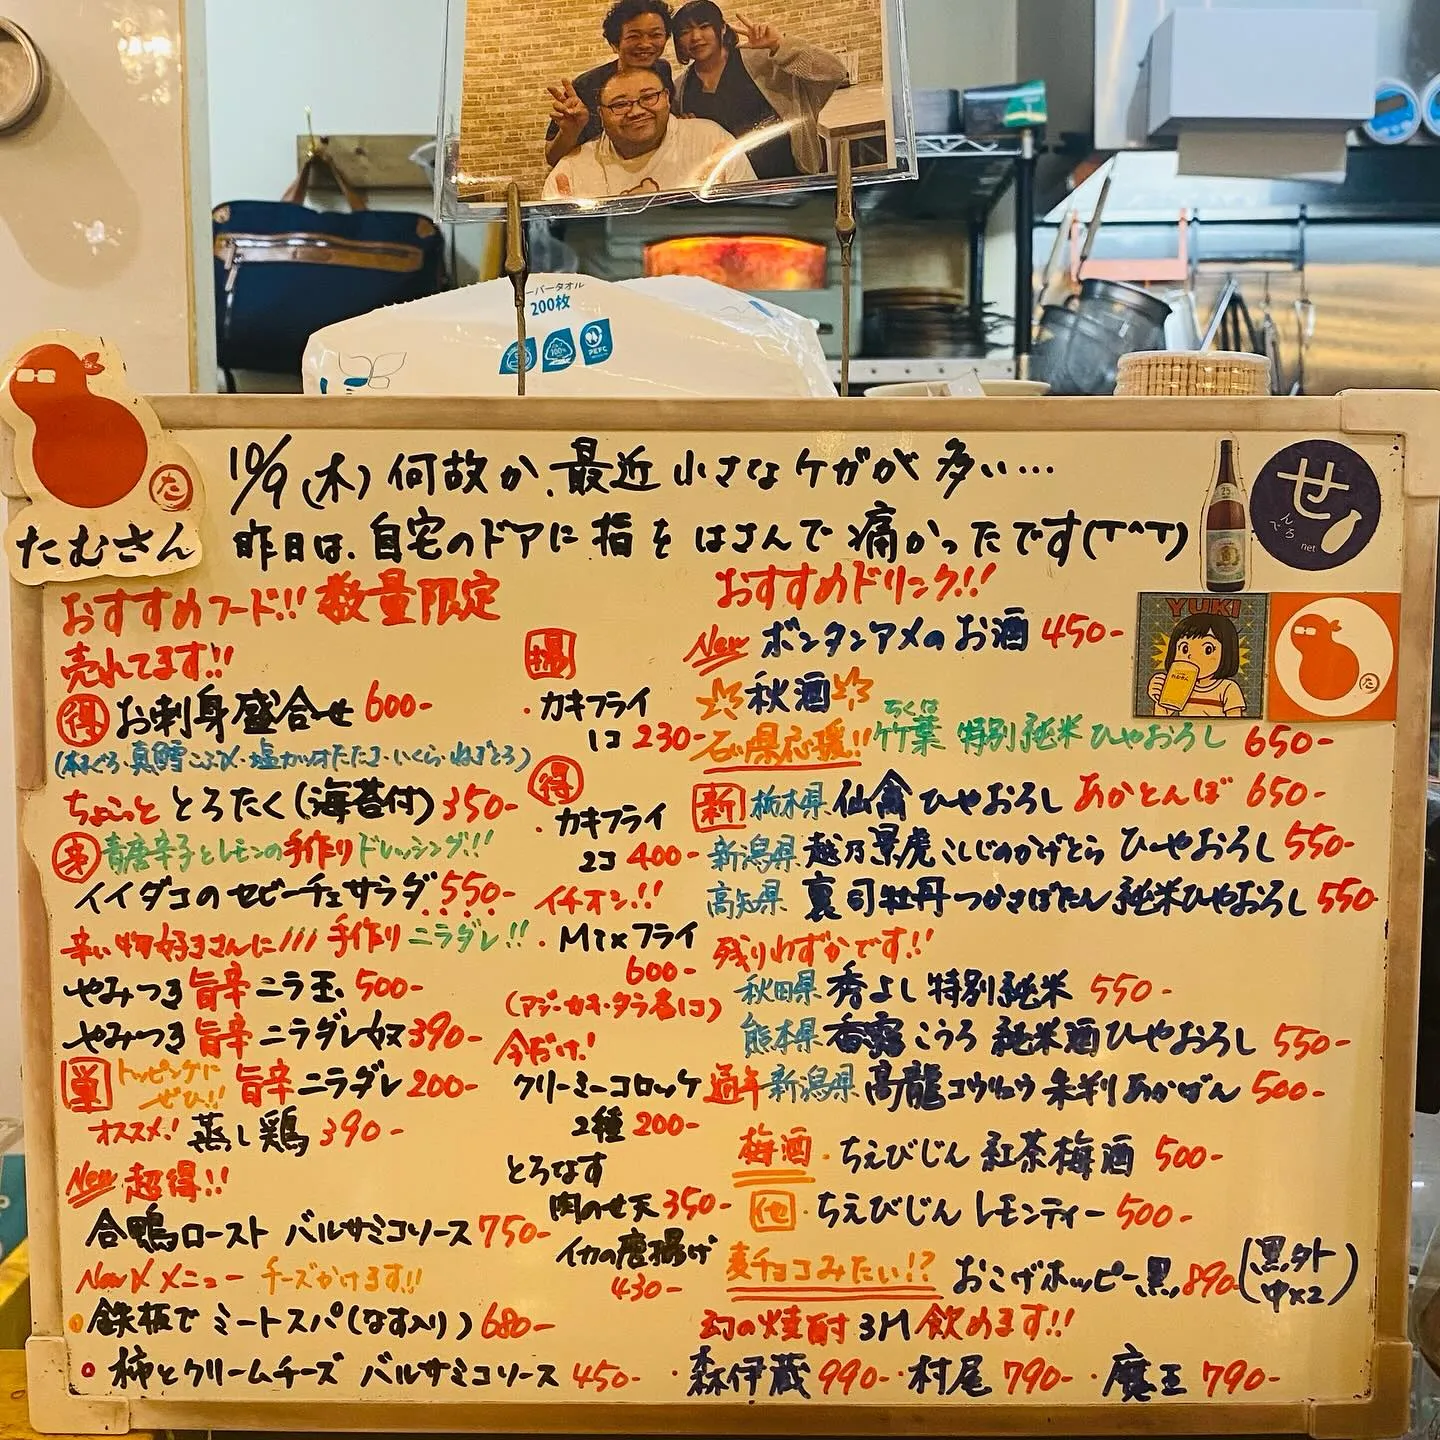 ーパータオル
200枚
100%
PEFC
た
たむさん
10/9(木)何故か、最近 小さなケガが多い…
昨日は、自宅のドアに指をはさんで痛かったです(T^T)
せ
んでろ
net
YUKI
た
おすすめフード!! 数量限定
売れてます!!
得 お刺身盛合せ 600-
(本まぐろ・真鱈こぶ〆・塩カツオたたき・いくら・ねぎとろ)
ちょこっと とろたく(海苔付) 350-
青唐辛子とレモンの手作りドレッシング!!
イイダコのセビーチェサラダ 550-
辛い物好きさんに!!! 手作りニラダレ!!
やみつき 旨辛 ニラ玉 500-
やみつき 旨辛 ニラダレ奴 390-
単 トッピングにぜひ!! 旨辛 ニラダレ 200-
オススメ! 蒸し鶏 390-
New 超得!!
合鴨ロースト バルサミコソース 750-
New〆メニュー チーズかけます!!
鉄板で ミートスパ(なす入り) 680-
柿とクリームチーズ バルサミコソース 450-
揚
・カキフライ
1コ 230-
得
・カキフライ
2コ 400-
イチオシ!!
・Mixフライ
600-
(アジ・カキ・タラ各1コ)
今だけ!
クリーミーコロッケ
2種 200-
とろなす
肉のせ天 350-
イカの唐揚げ
430-
おすすめドリンク!!
New ボンタンアメのお酒 450-
秋酒
石川県応援!! 竹葉 ちくは 特別純米 ひやおろし 650-
新 栃木県 仙禽 ひやおろし あかとんぼ 650-
新潟県 越乃景虎 こしじのかげとら ひやおろし 550-
高知県 裏司牡丹 つかさぼたん 純米ひやおろし 550-
残りわずかです!!
秋田県 秀よし 特別純米 550-
熊本県 香露 こうろ 純米酒ひやおろし 550-
通年 新潟県 高龍 コウリュウ 朱判 あかばん 500-
梅酒・ちえびじん 紅茶梅酒 500-
他・ちえびじん レモンティー 500-
麦チョコみたい!? おこげホッピー黒 890-(黒外 中×2)
幻の焼酎 3M 飲めます!!
・森伊蔵 990-・村尾 790-・魔王 790-